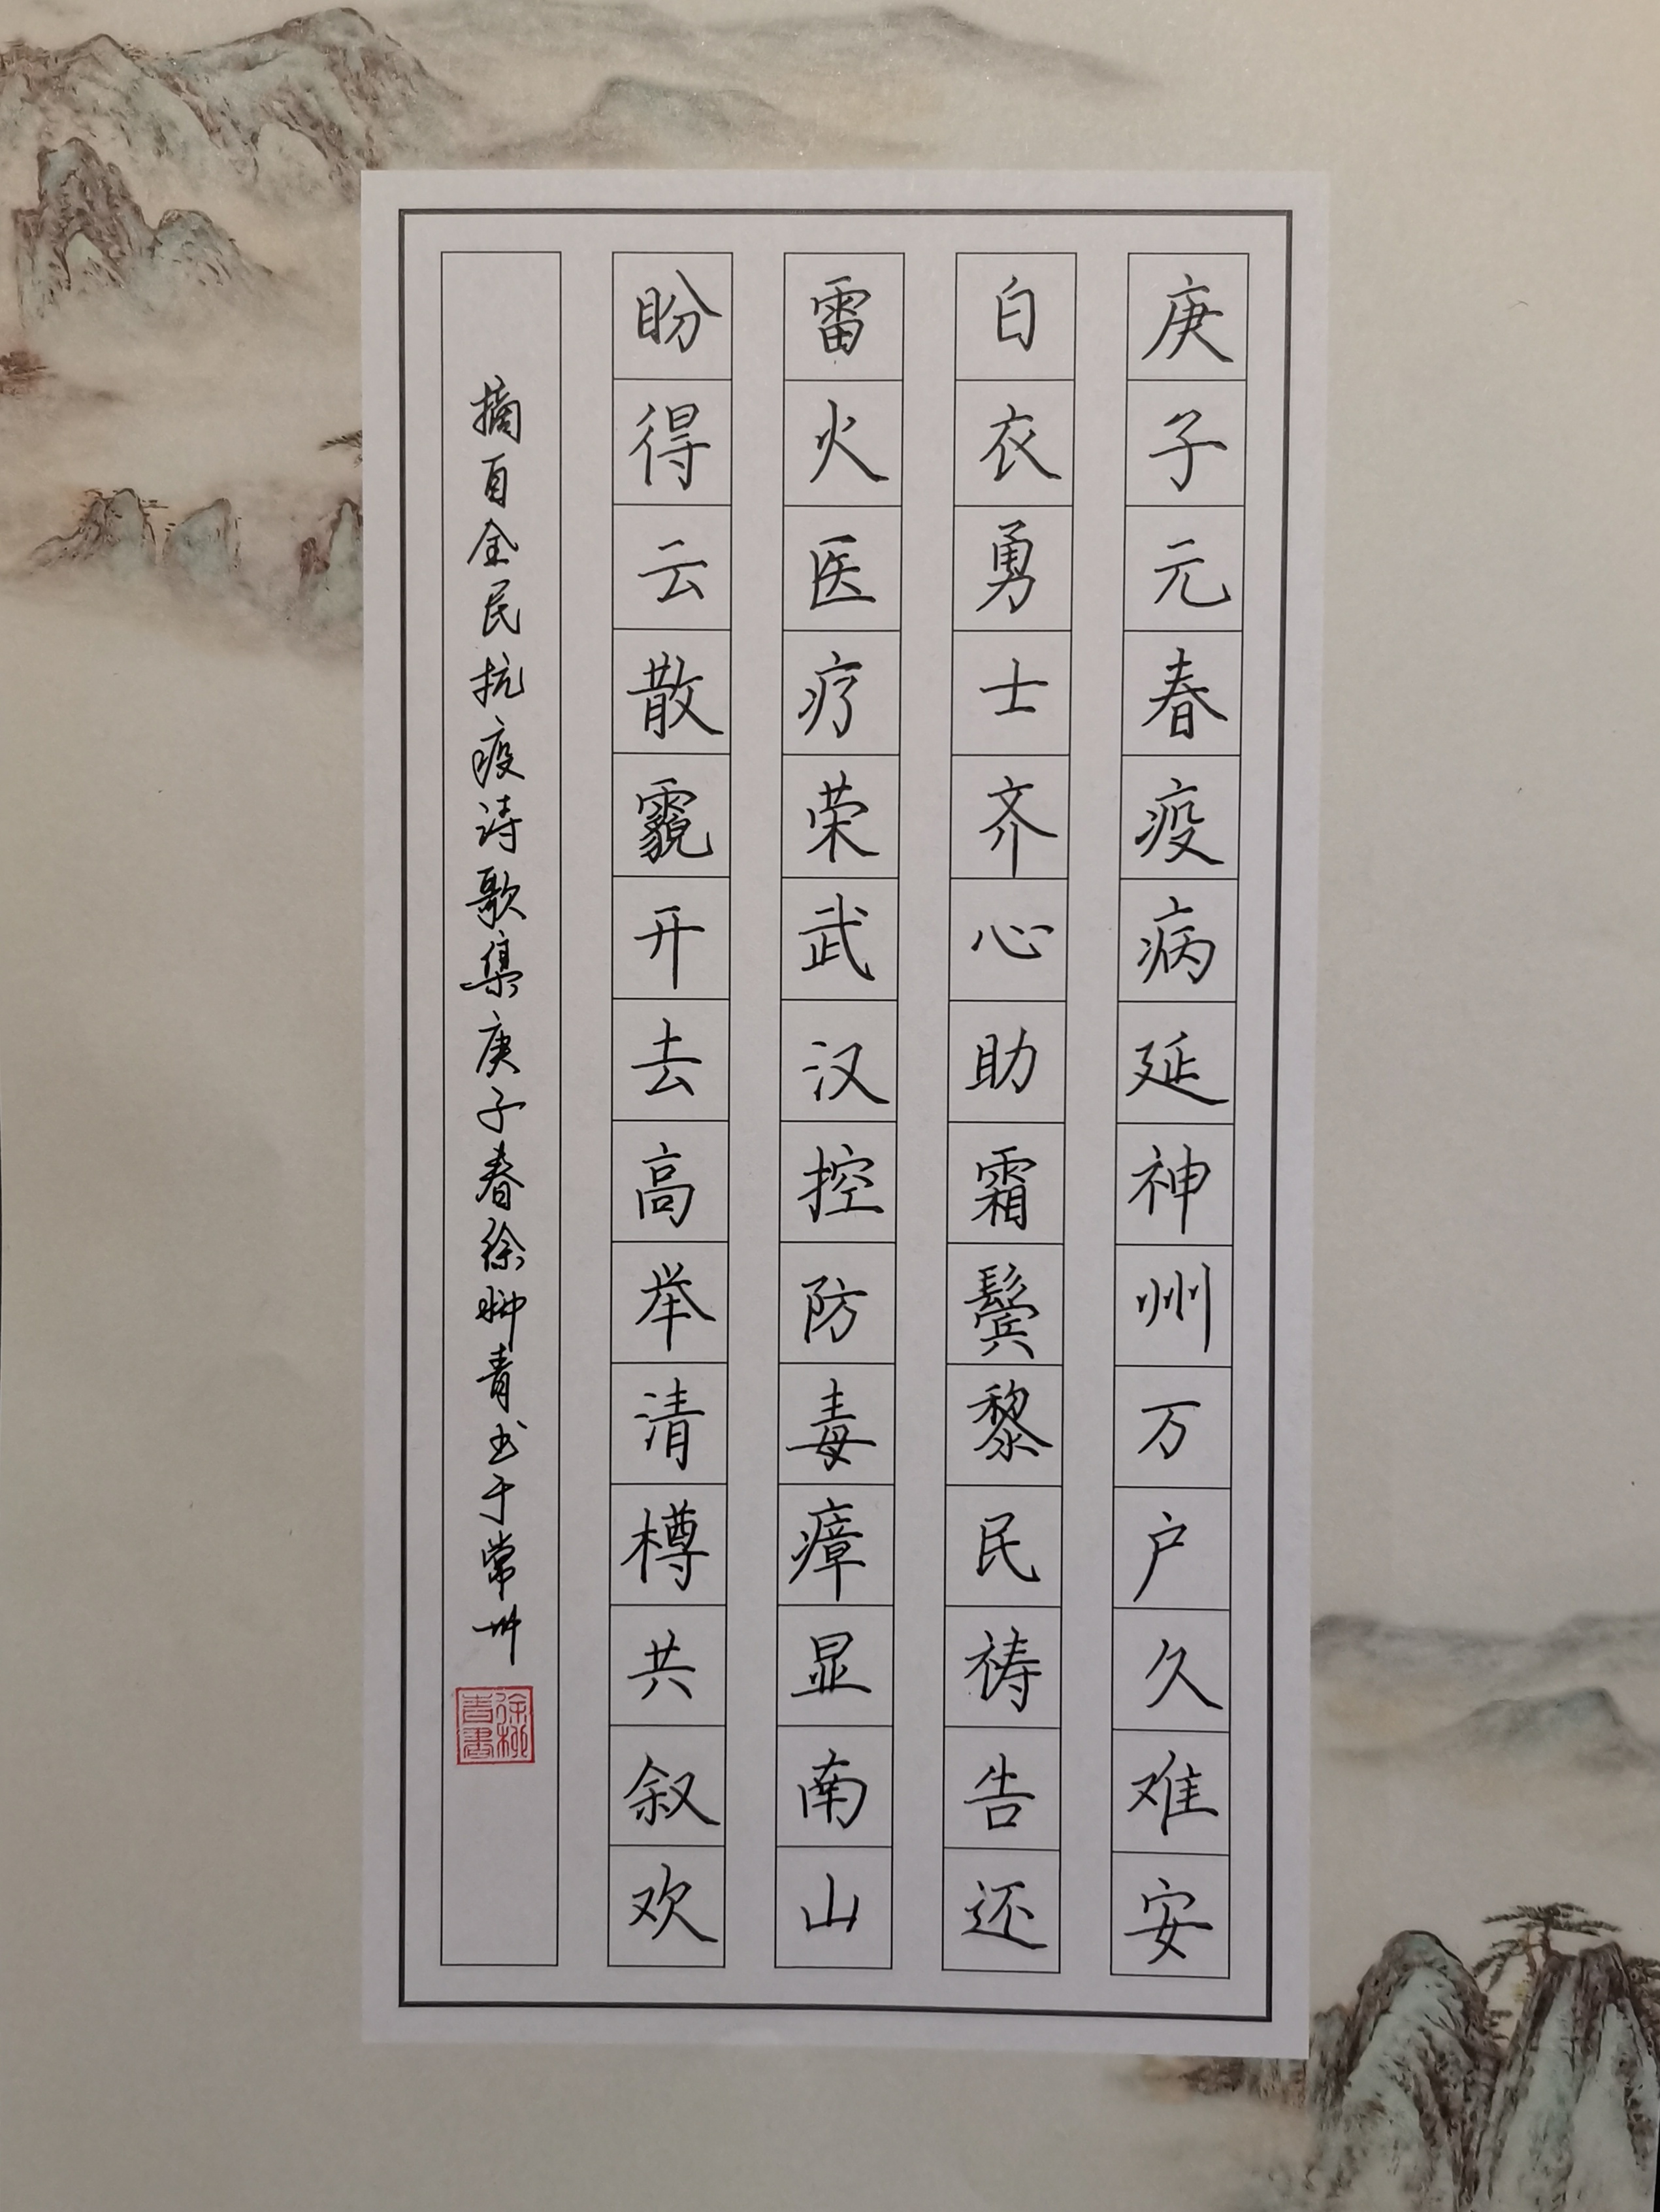 庚子元春疫病延神州万户久难安
白衣勇士齐心助霜鬓黎民祷告还
雷火医疗荣武汉控防毒瘴显南山
盼得云散霿开去高举清樽共叙欢
摘自全民抗疫诗歌集庚子春徐柳青书于常州
徐柳青書